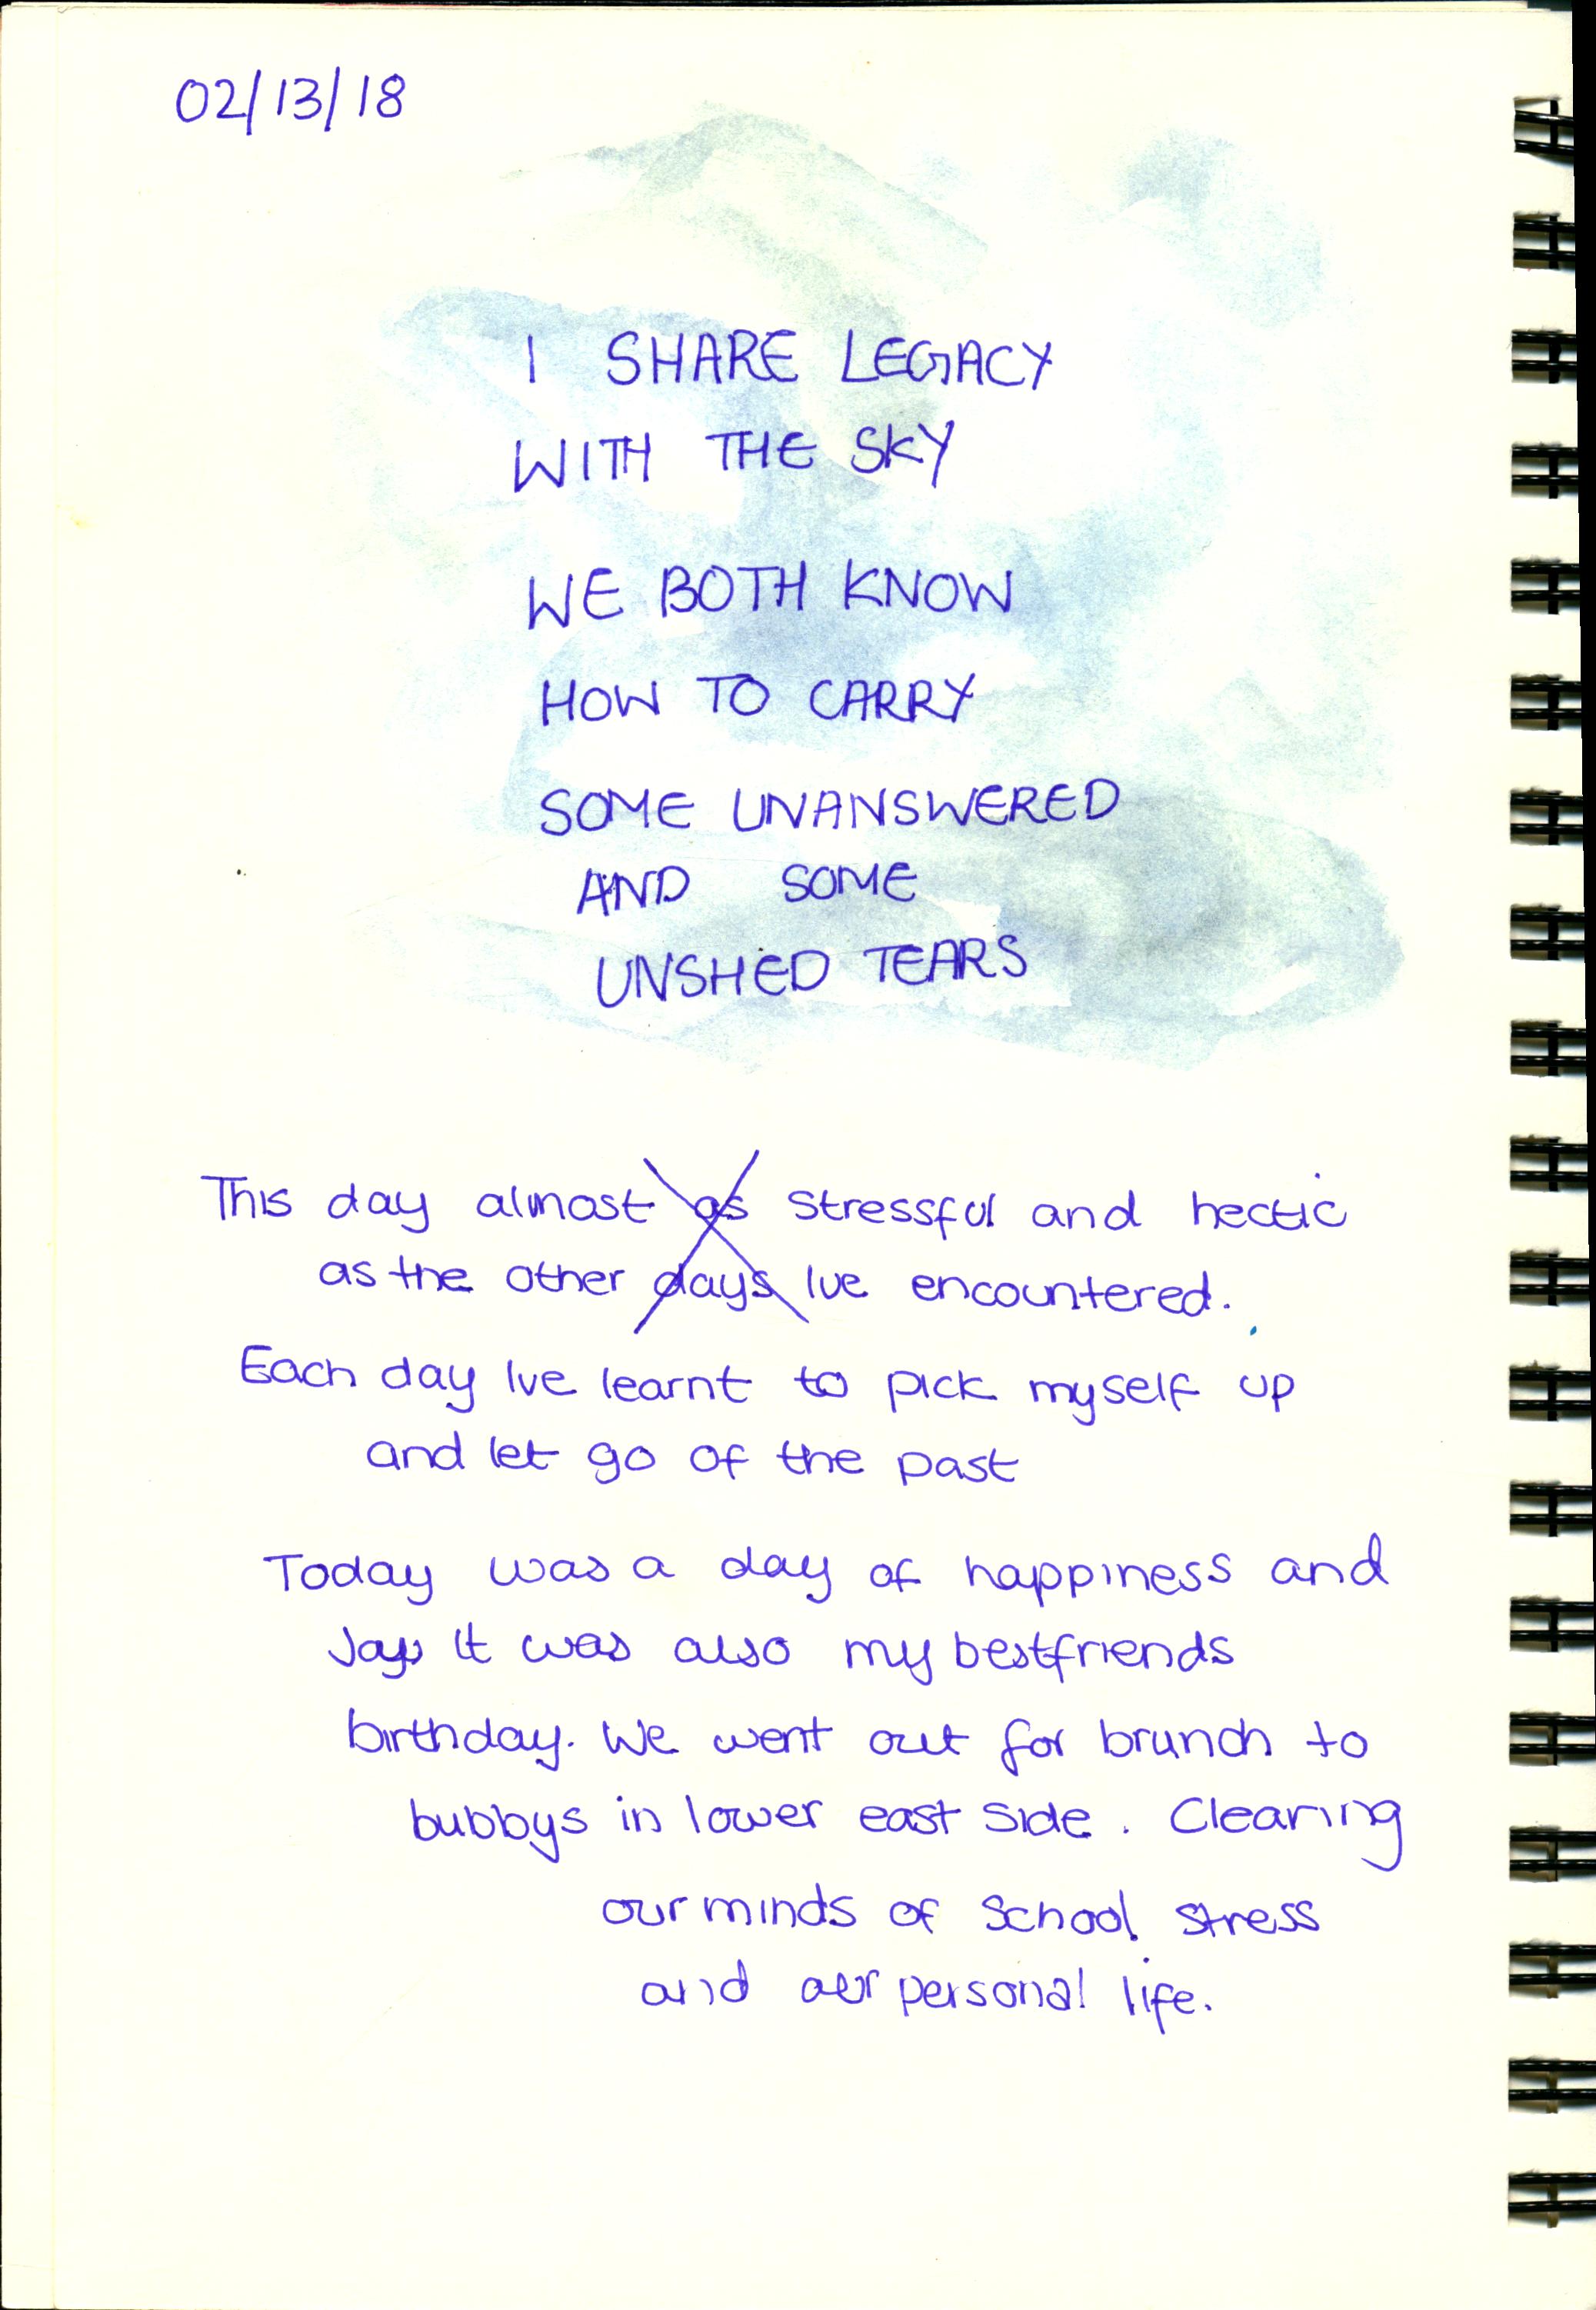 02/13/18
I SHARE LEGACY
WITH THE SKY
WE BOTH KNOW
HOW TO CARRY
SOME UNANSWERED
AND SOME
UNSHED TEARS
This day almost as stressful and hectic
as the other days Ive encountered.
Each day Ive learnt to pick myself up
and let go of the past
Today was a day of happiness and
It was also my bestfriends
birthday. We went out for brunch to
bubbys in lower east side. Clearing
our minds of school stress
and our personal life.